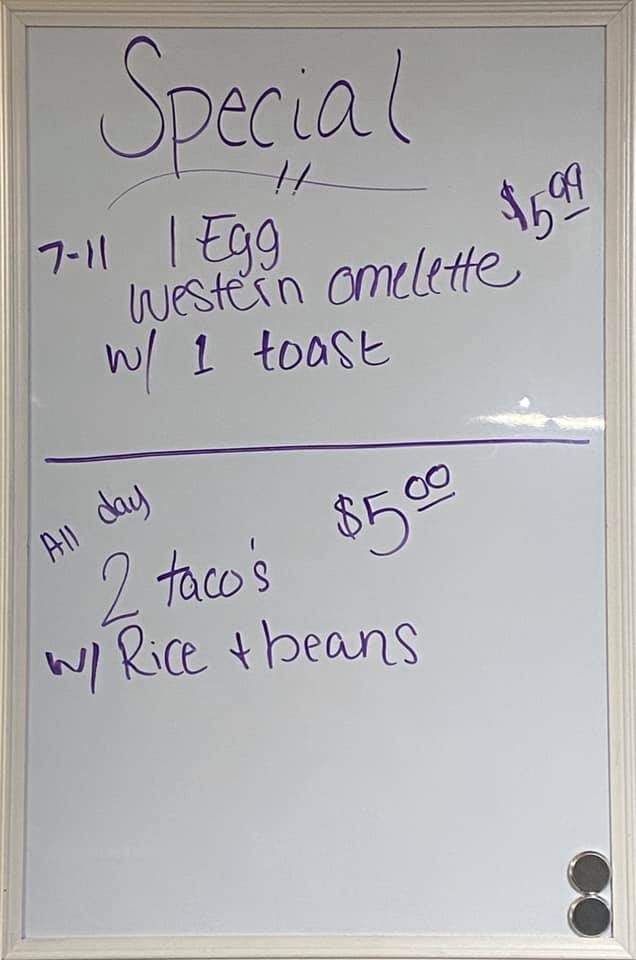 Special
!!
$5.99
7-11 1 Egg
Western omelette
w/ 1 toast
All day
$5.00
2 taco's
w/ Rice + beans